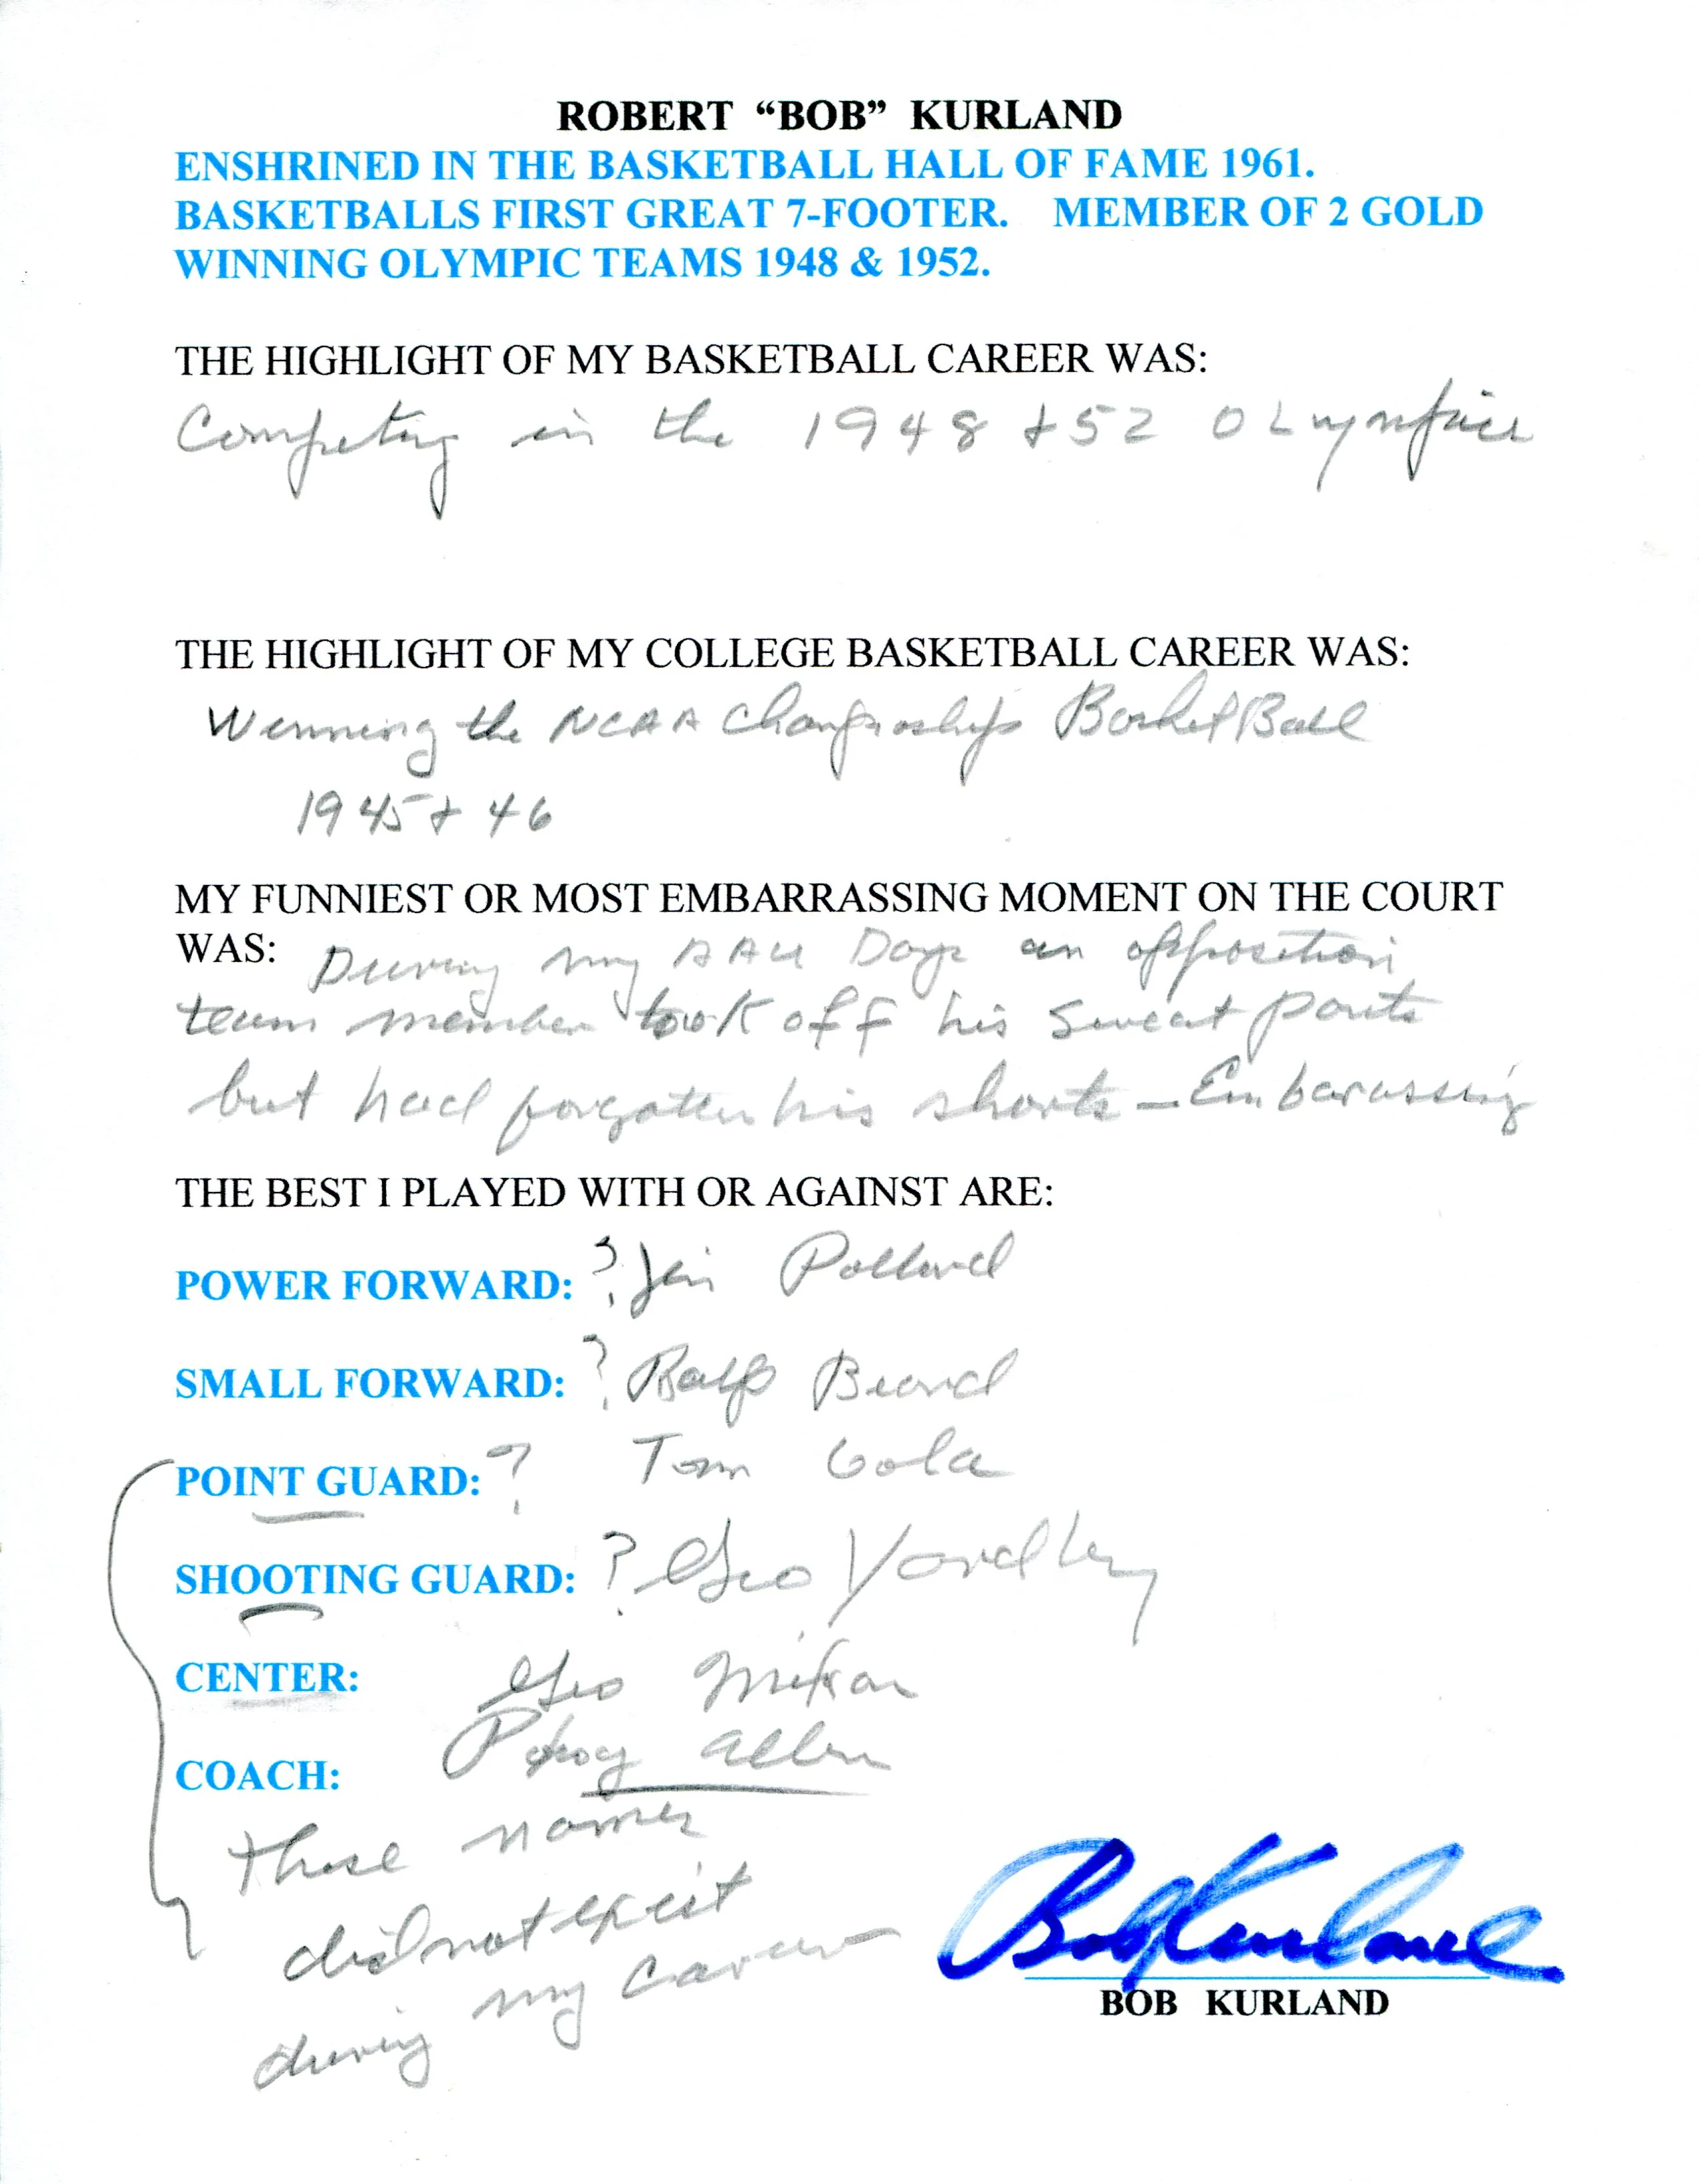 ROBERT “BOB” KURLAND
ENSHRINED IN THE BASKETBALL HALL OF FAME 1961.
BASKETBALLS FIRST GREAT 7-FOOTER. MEMBER OF 2 GOLD
WINNING OLYMPIC TEAMS 1948 & 1952.
THE HIGHLIGHT OF MY BASKETBALL CAREER WAS:
Competing in the 1948 + 52 OLympics
THE HIGHLIGHT OF MY COLLEGE BASKETBALL CAREER WAS:
Winning the NCAA Championships BasketBall
1945 + 46
MY FUNNIEST OR MOST EMBARRASSING MOMENT ON THE COURT
WAS: During my AAU Days an opposition
team member took off his sweat pants
but had forgotten his shorts – Embarassing
THE BEST I PLAYED WITH OR AGAINST ARE:
POWER FORWARD: ? Jim Pollard
SMALL FORWARD: ? Ralp Beard
POINT GUARD: ? Tom Gola
SHOOTING GUARD: ? Geo Yardley
CENTER: Geo Mikan
COACH: Phog Allen
these names
did not exist
during my career
Bob Kurland
BOB KURLAND